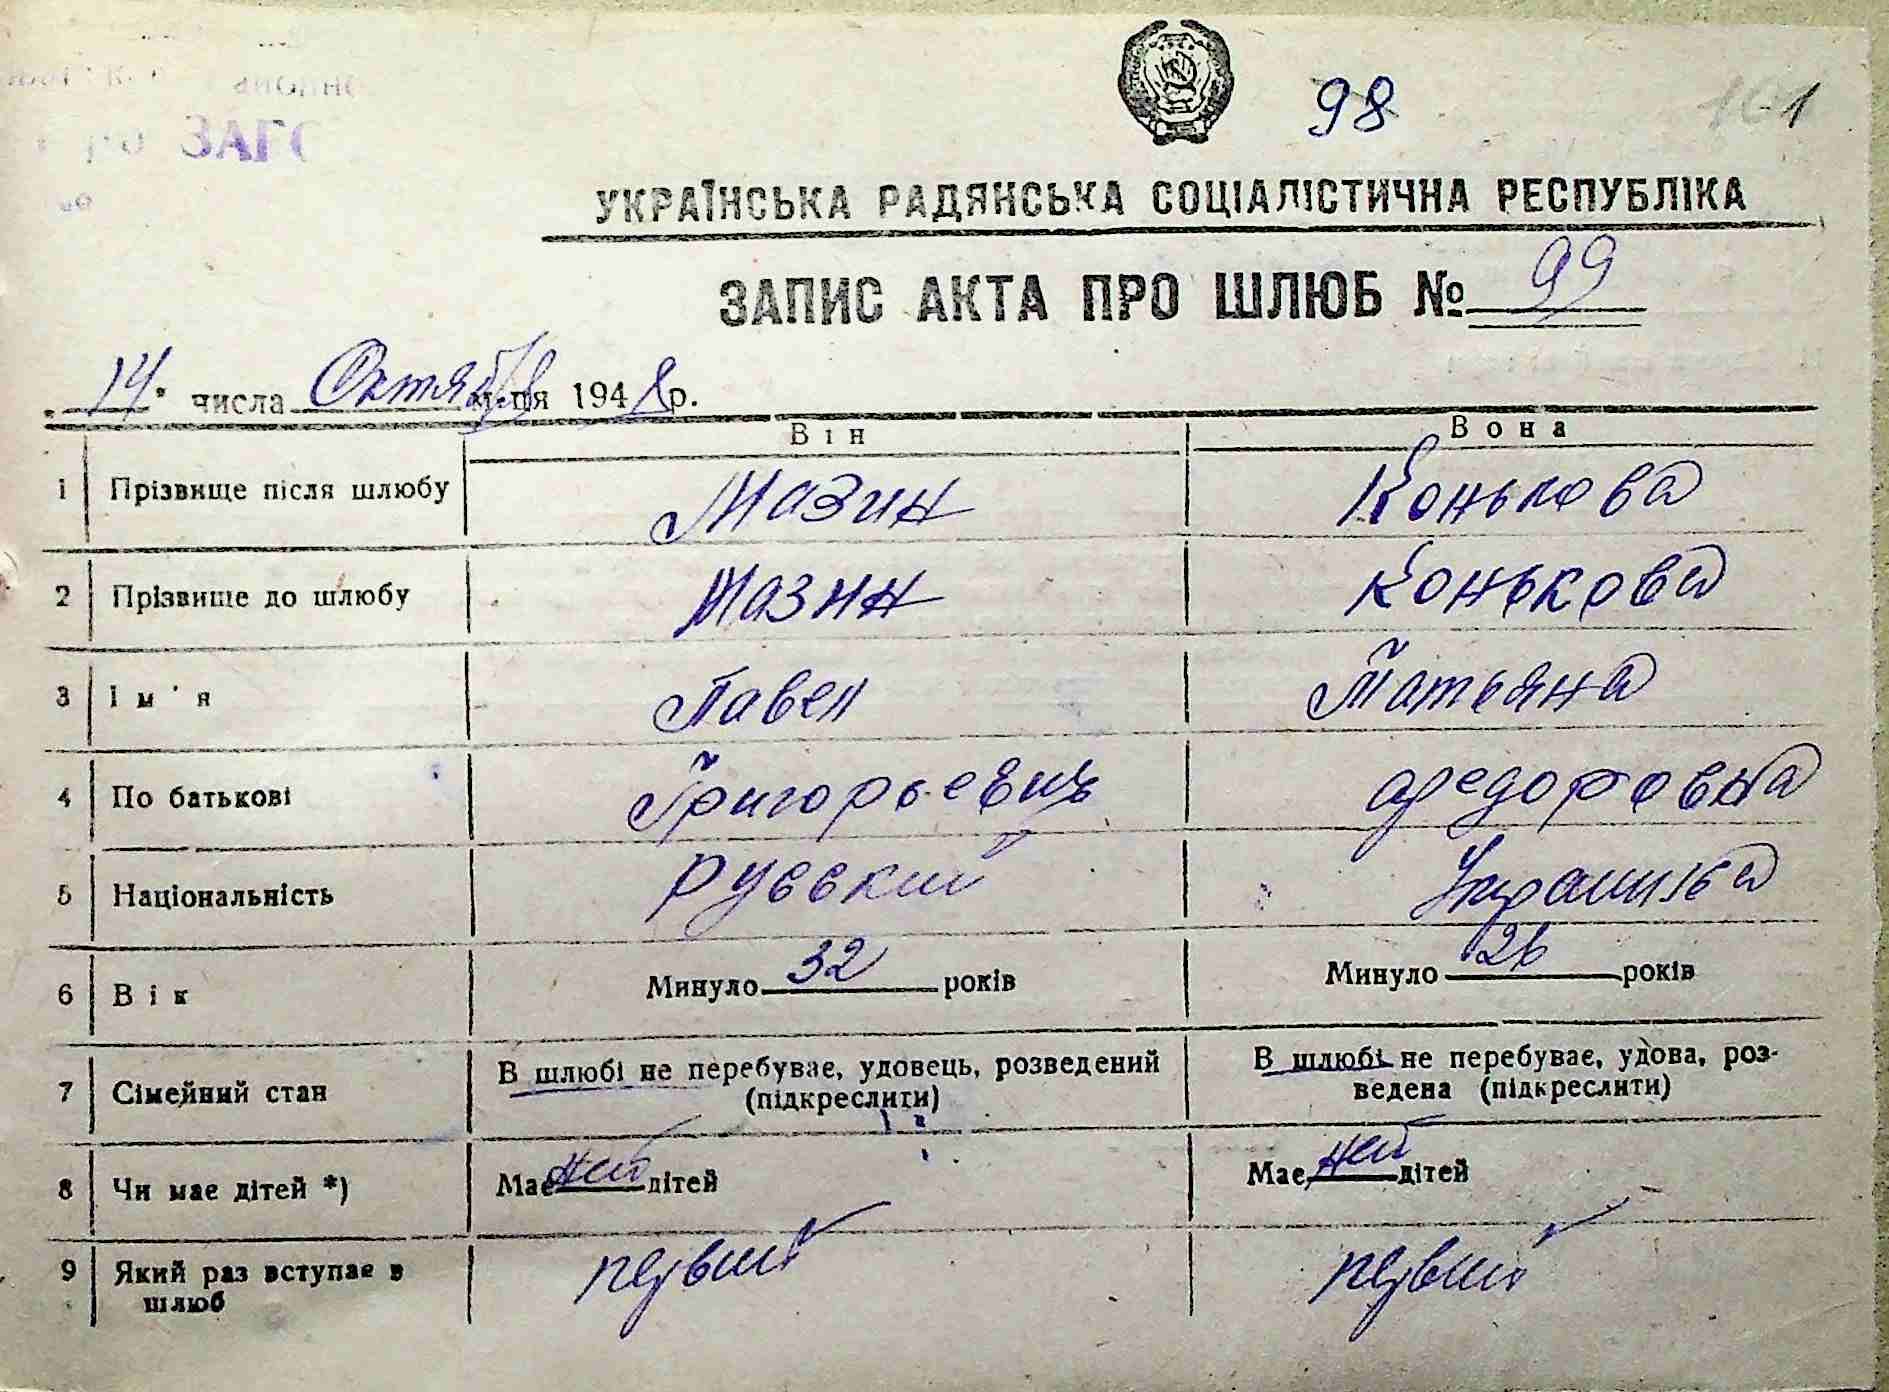 ЗАГС
98
101
УКРАЇНСЬКА РАДЯНСЬКА СОЦІАЛІСТИЧНА РЕСПУБЛІКА
ЗАПИС АКТА ПРО ШЛЮБ № 99
14 числа Октября м-ця 1948 р.
Він Вона
1 Прізвище після шлюбу Мазин Конькова
2 Прізвище до шлюбу Мазин Конькова
3 Ім'я Павел Татьяна
4 По батькові Григорьевич Федоровна
5 Національність русский Украинка
6 Вік Минуло 32 років Минуло 26 років
7 Сімейний стан В шлюбі не перебуває, удовець, розведений В шлюбі не перебуває, удова, роз-
(підкреслити) ведена (підкреслити)
8 Чи має дітей *) Має нет дітей Має нет дітей
9 Який раз вступає в первий первий
шлюб